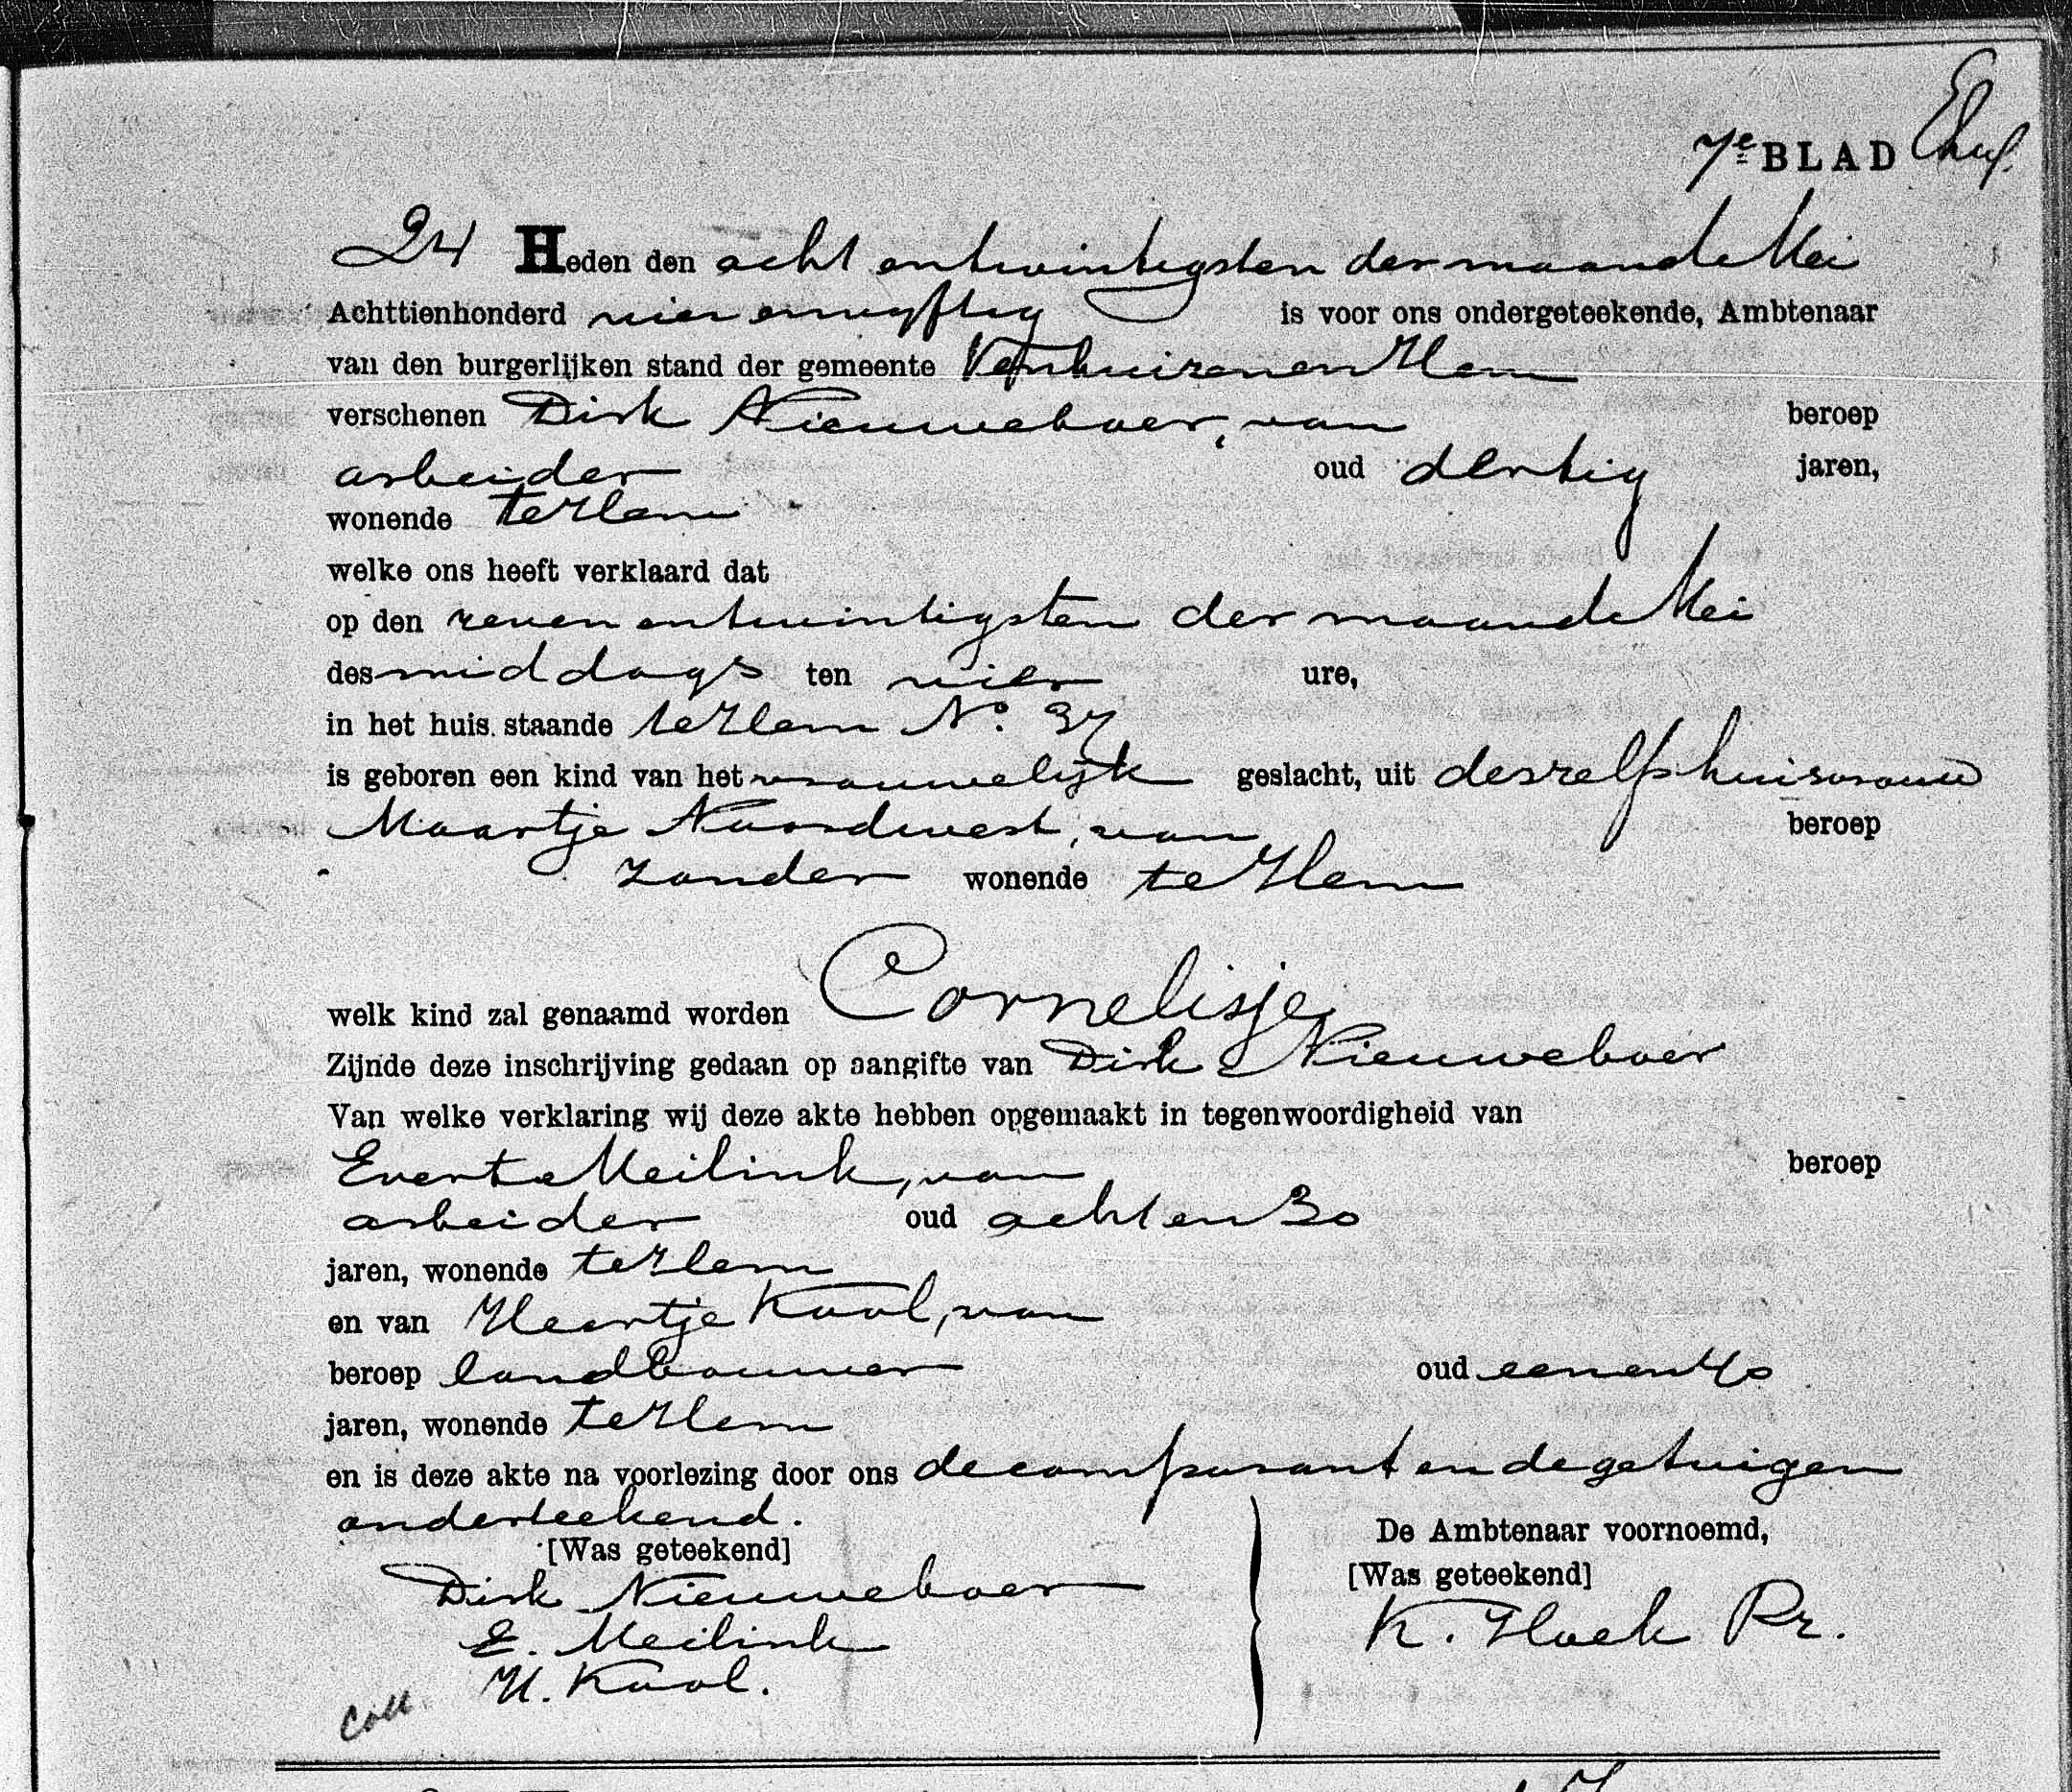 7e BLAD
24 Heden den acht entwintigsten der maand Mei
Achttienhonderd vier en vyftig is voor ons ondergeteekende, Ambtenaar
van den burgerlijken stand der gemeente Venhuizen en Hem
verschenen Dirk Nieuweboer, van beroep
arbeider oud dertig jaren,
wonende te Hem
welke ons heeft verklaard dat
op den zeven entwintigsten der maand Mei
des middags ten vier ure,
in het huis staande te Hem No. 37
is geboren een kind van het vrouwelijk geslacht, uit deszelfs huisvrouw
Maartje Noordwest, van beroep
zonder wonende te Hem
welk kind zal genaamd worden Cornelisje
Zijnde deze inschrijving gedaan op aangifte van Dirk Nieuweboer
Van welke verklaring wij deze akte hebben opgemaakt in tegenwoordigheid van
Evert Meilink, van beroep
arbeider oud acht en 30
jaren, wonende te Hem
en van Heertje Kool, van
beroep landbouwer oud een en 40
jaren, wonende te Hem
en is deze akte na voorlezing door ons de comparant en de getuigen
onderteekend.
[Was geteekend] De Ambtenaar voornoemd,
Dirk Nieuweboer [Was geteekend]
E. Meilink K. Hoek Pz.
H. Kool.
Coll.